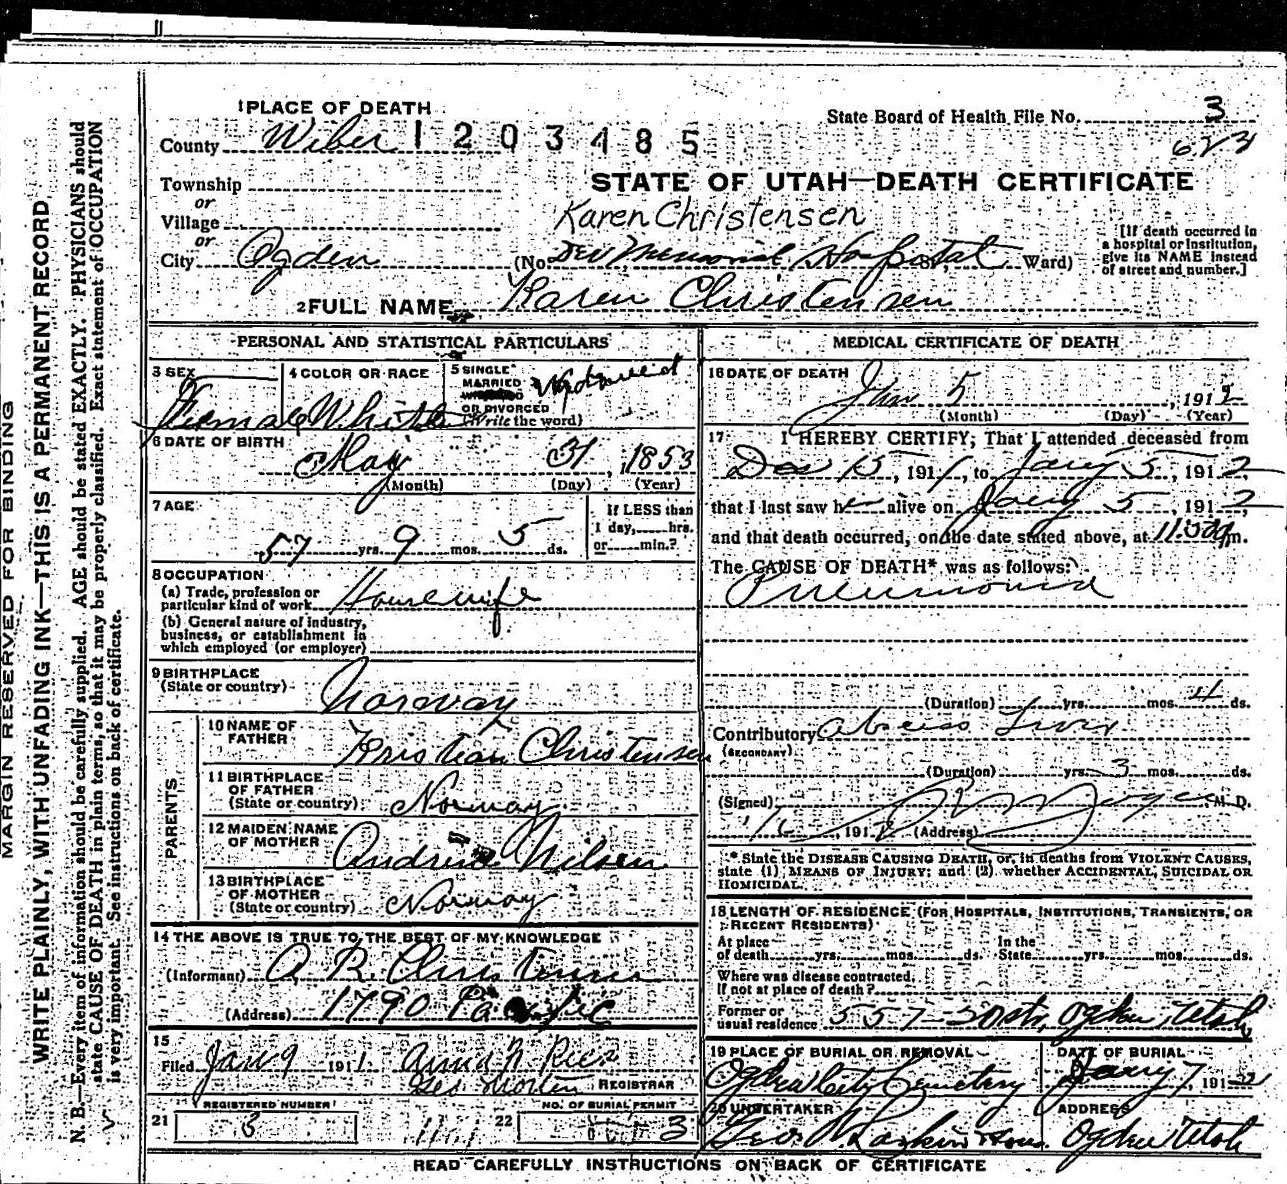 MARGIN RESERVED FOR BINDING
WRITE PLAINLY, WITH UNFADING INK—THIS IS A PERMANENT RECORD
N. B.—Every item of information should be carefully supplied. AGE should be stated EXACTLY. PHYSICIANS should
state CAUSE OF DEATH in plain terms, so that it may be properly classified. Exact statement of OCCUPATION
is very important. See instructions on back of certificate.
1 PLACE OF DEATH
State Board of Health File No. 3
County Weber 1203485
623
Township
or
STATE OF UTAH—DEATH CERTIFICATE
Village
or
Karen Christensen
City Ogden (No. Dee Memorial Hospital Ward)
[If death occurred in
a hospital or institution,
give its NAME instead
of street and number.]
2 FULL NAME Karen Christensen
PERSONAL AND STATISTICAL PARTICULARS
3 SEX
Female
4 COLOR OR RACE
White
5 SINGLE
MARRIED
OR DIVORCED
(Write the word)
Widowed
6 DATE OF BIRTH
May 31, 1853
(Month) (Day) (Year)
7 AGE
57 yrs. 9 mos. 5 ds.
If LESS than
1 day, hrs.
or min.?
8 OCCUPATION
(a) Trade, profession or
particular kind of work Housewife
(b) General nature of industry,
business, or establishment in
which employed (or employer)
9 BIRTHPLACE
(State or country) Norway
PARENTS
10 NAME OF
FATHER Kristian Christensen
11 BIRTHPLACE
OF FATHER
(State or country) Norway
12 MAIDEN NAME
OF MOTHER Andrina Nilsen
13 BIRTHPLACE
OF MOTHER
(State or country) Norway
14 THE ABOVE IS TRUE TO THE BEST OF MY KNOWLEDGE
(Informant) A. R. Christensen
(Address) 1790 Pacific
15
Filed Jan 9 1911. Anna N Rees
Geo Shorten REGISTRAR
REGISTERED NUMBER
21 3
NO. OF BURIAL PERMIT
22 3
MEDICAL CERTIFICATE OF DEATH
16 DATE OF DEATH
Jan 5, 1912
(Month) (Day) (Year)
17 I HEREBY CERTIFY, That I attended deceased from
Dec 15, 1911, to Jany 5, 1912
that I last saw h alive on Jany 5, 1912,
and that death occurred, on the date stated above, at m.
The CAUSE OF DEATH* was as follows:
Pneumonia
(Duration) yrs. mos. 4 ds.
Contributory Abcess Liver
(SECONDARY)
(Duration) yrs. 3 mos. ds.
(Signed) M. D.
1/6, 191 (Address)
* State the DISEASE CAUSING DEATH, or, in deaths from VIOLENT CAUSES,
state (1) MEANS OF INJURY; and (2) whether ACCIDENTAL, SUICIDAL OR
HOMICIDAL.
18 LENGTH OF RESIDENCE (FOR HOSPITALS, INSTITUTIONS, TRANSIENTS, OR
RECENT RESIDENTS)
At place
of death yrs. mos. ds.
In the
State yrs. mos. ds.
Where was disease contracted,
If not at place of death?
Former or
usual residence 557-30 str, Ogden Utah
19 PLACE OF BURIAL OR REMOVAL
Ogden City Cemetery
DATE OF BURIAL
Jany 7, 1912
20 UNDERTAKER
Geo W Larkin Sons
ADDRESS
Ogden Utah
READ CAREFULLY INSTRUCTIONS ON BACK OF CERTIFICATE